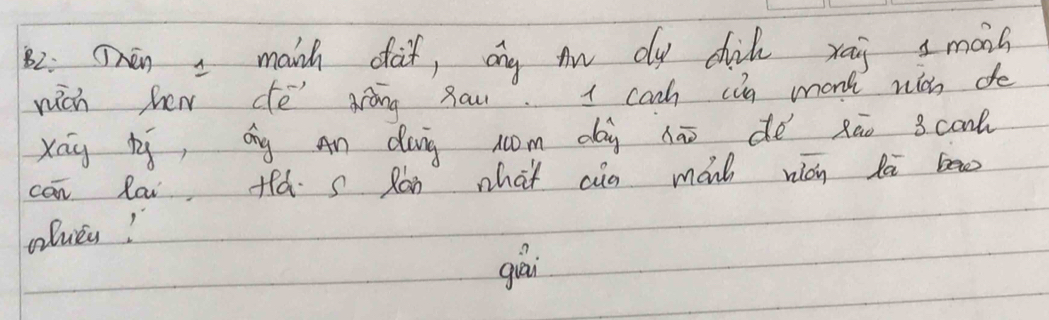 B2: Trên 1 mảnh đất, ông An dự định xây 1 mảnh
vườn hcn để trồng rau. 1 cạnh của mảnh vườn để
xây tg, ông An dùng 100m dây rào để rào 3 cạnh
còn lại. Hỏi S lớn nhất của mảnh vườn là bao
nhiêu?
giải